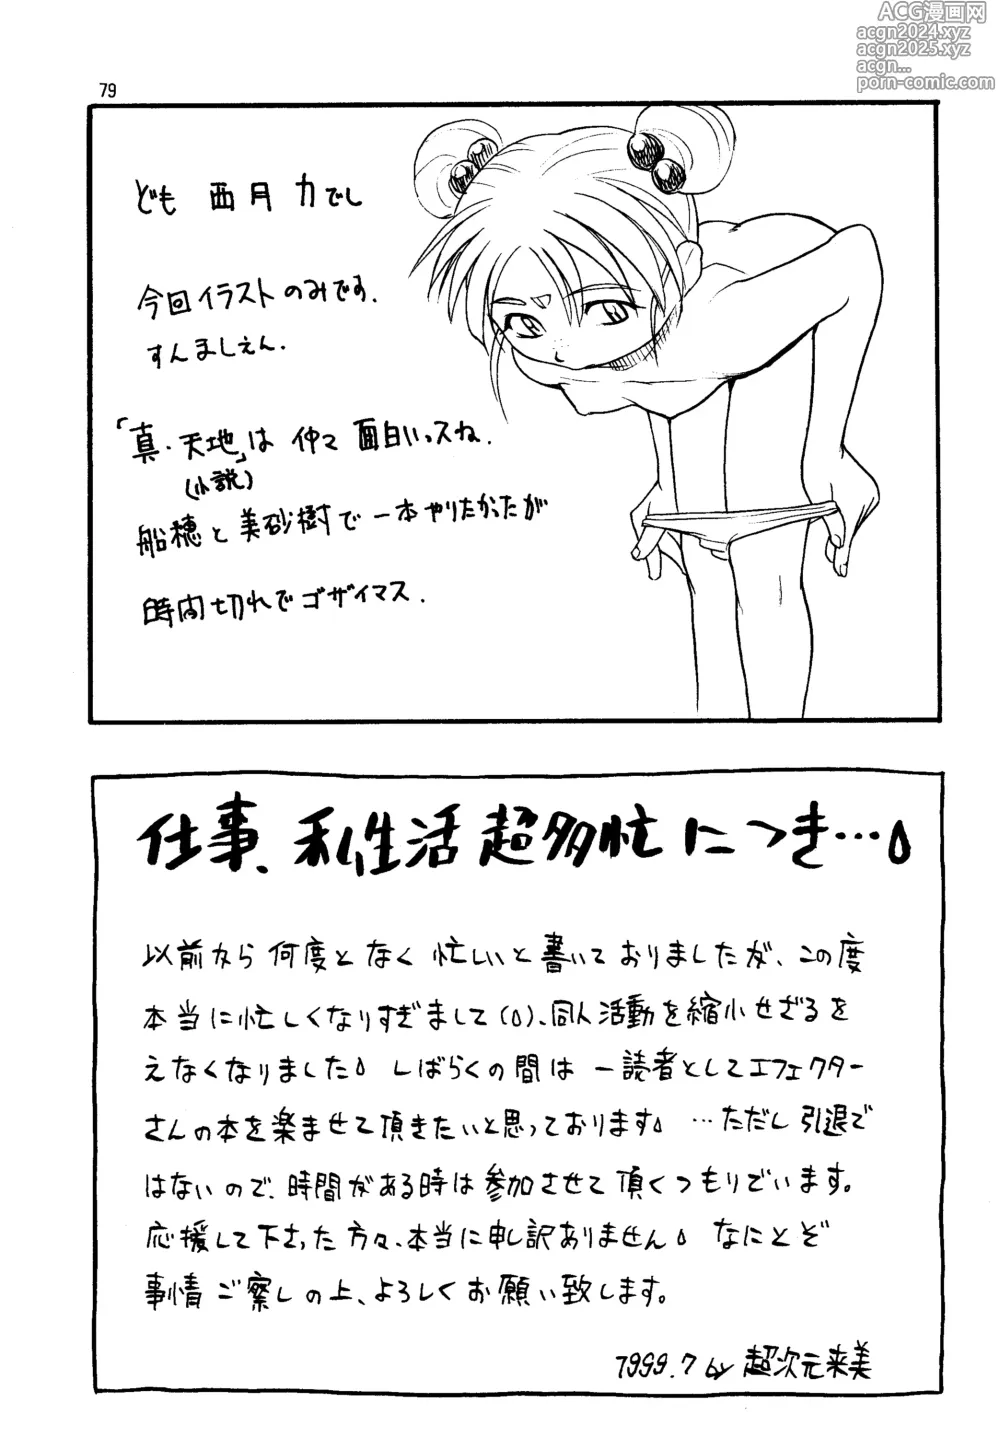 ACG漫画网
acgn2024.xyz
acgn2025.xyz
acgn...
porn-comic.com
79
ども 西月 力でし
今回イラストのみです.
すんましぇん.
「真・天地」は 仲々 面白いっスね.
(小説)
船穂と美砂樹で一本やりたかったが
時間切れでゴザイマス.
仕事、私生活超多忙につき…
以前から何度となく忙しいと書いておりましたが、この度
本当に忙しくなりすぎまして()、同人活動を縮小せざるを
えなくなりました しばらくの間は一読者としてエフェクター
さんの本を楽ませて頂きたいと思っております …ただし引退で
はないので、時間がある時は参加させて頂くつもりでいます。
応援して下さった方々、本当に申し訳ありません なにとぞ
事情ご察しの上、よろしくお願い致します。
1999.7 by 超次元来美